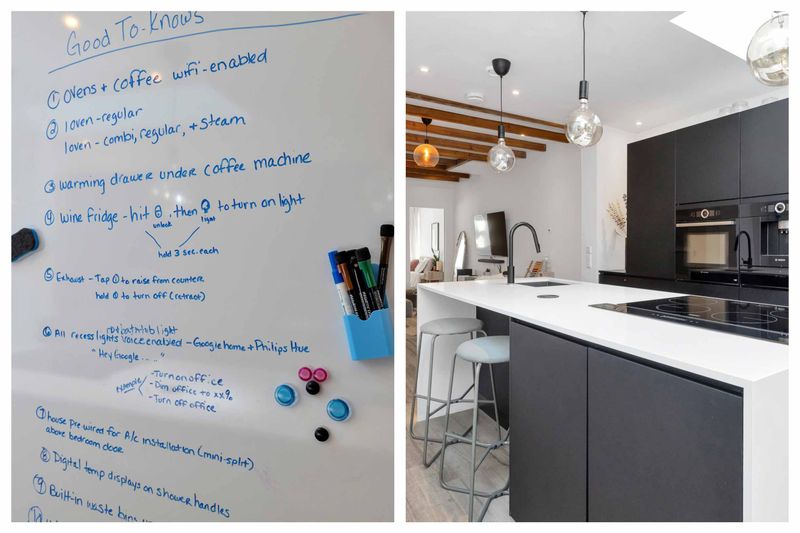 Good To-Knows
① Ovens + coffee wifi-enabled
② 1 oven-regular
1 oven-combi, regular, + Steam
③ warming drawer under coffee machine
④ wine fridge - hit , then to turn on light
unlock light
hold 3 sec. each
⑤ Exhaust - Tap to raise from counter
hold to turn off (retract)
+ bathtub light
⑥ All recess lights voice enabled - Google home + Philips Hue
"Hey Google....."
- Turn on office
- Dim office to xx%
- Turn off office
⑦ house pre wired for A/C installation (mini-split)
above bedroom door
⑧ Digital temp displays on shower handles
⑨ Built-in waste bins